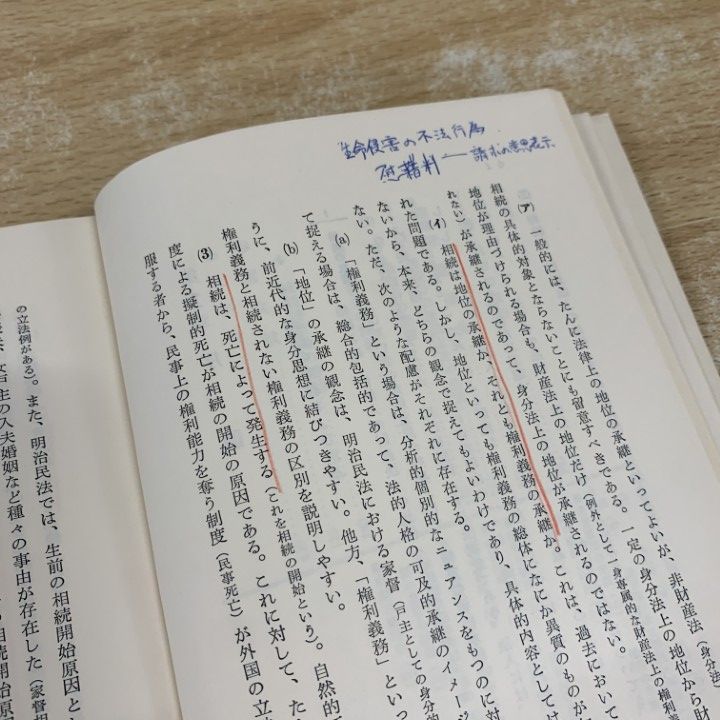 生命侵害の不法行為
慰藉料 ── 請求の意思表示
(ア) 一般的には、たんに法律上の地位の承継といってよいが、非財産法(身分法
相続の具体的対象とならないことにも留意すべきである。一定の身分法上の地位から財
地位が理由づけられる場合も、財産法上の地位だけ(例外として一身専属的な財産法上の権利
れない)が承継されるのであって、身分法上の地位が承継されるのではない。
(イ) 相続は地位の承継か、それとも権利義務の承継か。これは、過去において
れた問題である。しかし、地位といっても権利義務の総体になにか異質のものが
ないから、本来、どちらの観念で捉えてもよいわけであり、具体的内容としては
ない。ただ、次のような配慮がそれぞれに存在する。
(a) 「権利義務」という場合は、分析的個別的なニュアンスをもつのに対
て捉える場合は、総合的包括的であって、法的人格の可及的承継のイメージ
(b) 「地位」の承継の観念は、明治民法における家督(戸主としての身分的
うに、前近代的な身分思想に結びつきやすい。他方、「権利義務」といっ
権利義務と相続されない権利義務の区別を説明しやすい。
(3) 相続は、死亡によって発生する(これを相続の開始という)。自然的
度による擬制的死亡が相続の開始の原因である。これに対して、た
服する者から、民事上の権利能力を奪う制度(民事死亡)が外国の立
の立法例がある)。また、明治民法では、生前の相続開始原因と
主の入夫婚姻など種々の事由が存在した(家督相
相続開始原